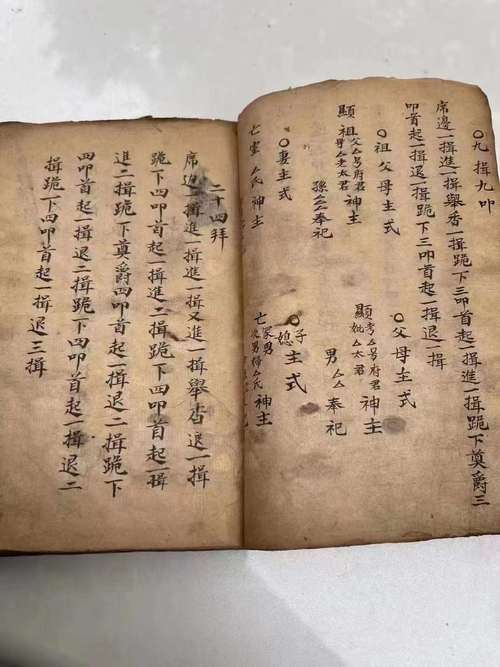 〇九揖九叩
席邊一揖進一揖舉香一揖跪下三叩首起一揖進一揖跪下奠爵三
叩首起一揖退一揖跪下三叩首起一揖退一揖
〇祖父母主式
顯祖父厶号府君母厶老太君神主
孫厶厶奉祀
〇父母主式
顯考厶号府君妣厶太君神主
男厶厶奉祀
〇妻主式
亡室厶氏神主
〇子媳主式
亡家男次男婦厶氏神主
二十四拜
席边一揖進一揖又進一揖舉香退一揖
跪下四叩首起一揖進二揖跪下四叩首起一揖
進二揖跪下奠爵四叩首起一揖退二揖跪下
四叩首起一揖退二揖跪下四叩首起一揖退二
揖跪下四叩首起一揖退三揖